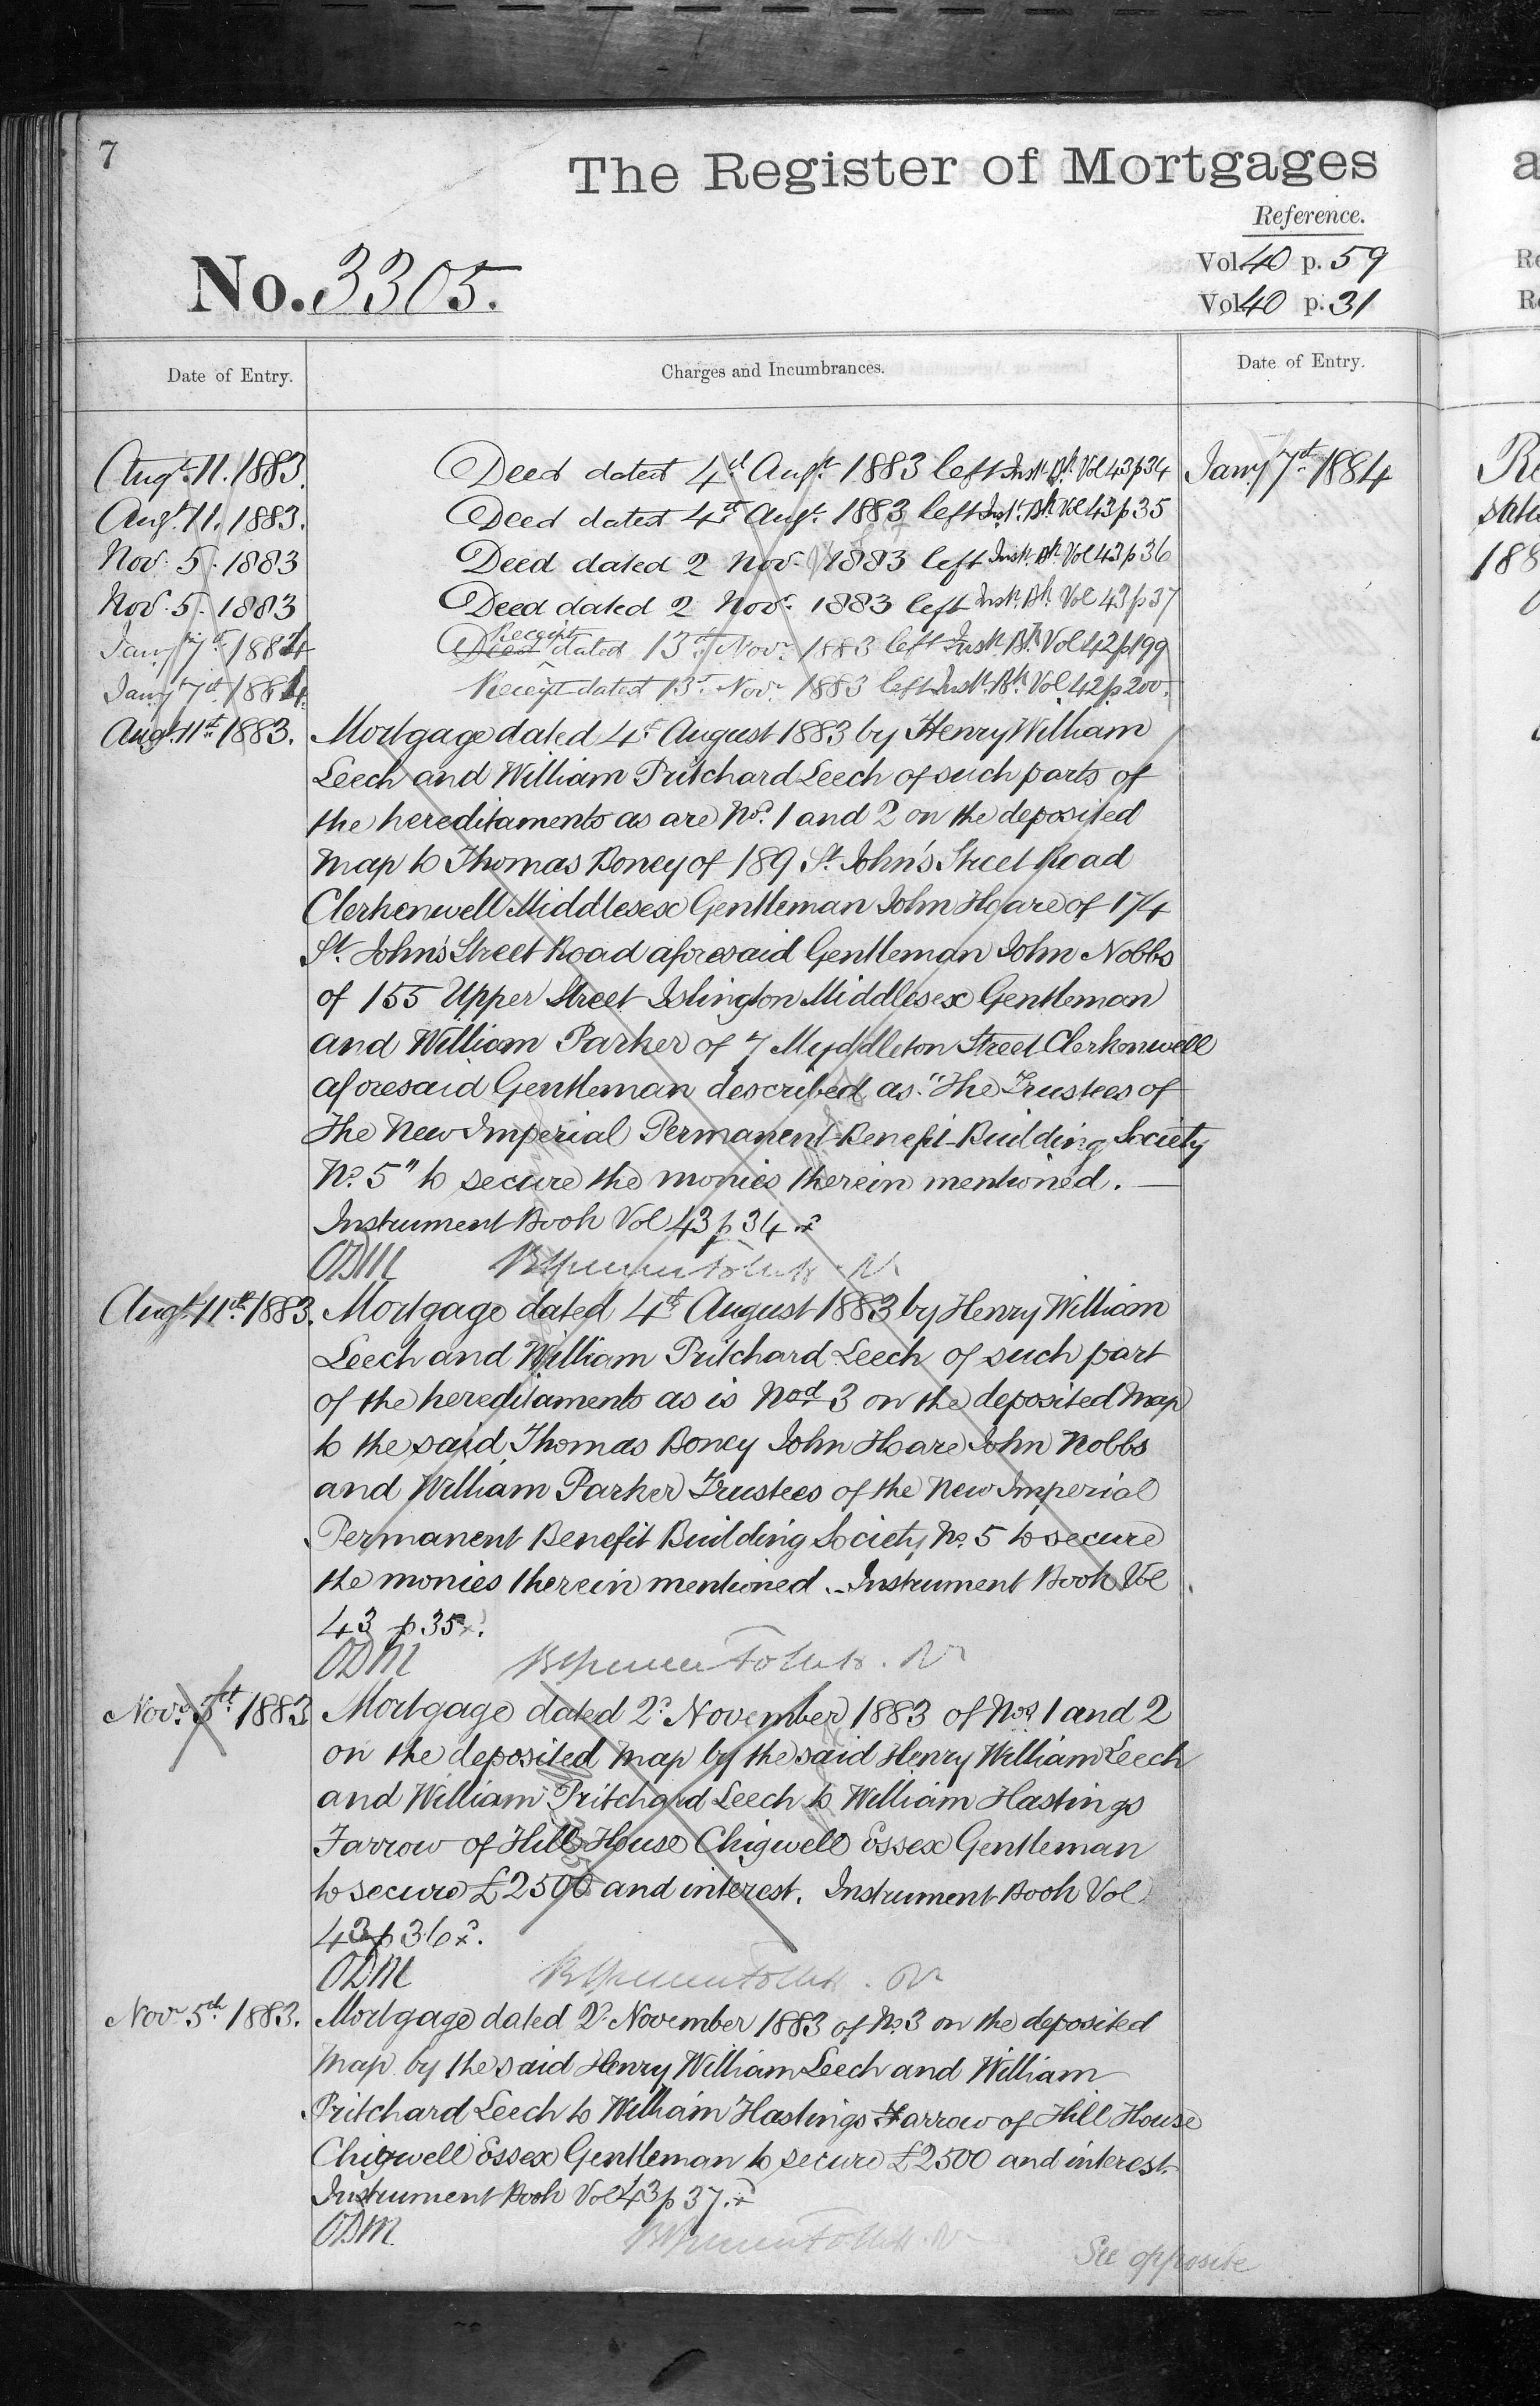 7
The Register of Mortgages
Reference.
Vol. 40 p. 59
No. 3305.
Vol. 40 p. 31
Date of Entry.
Charges and Incumbrances.
Date of Entry.
Augt. 11. 1883. Deed dated 4th Augt. 1883 left Inst. Bk. Vol 43 p 34 Jany 7th 1884
Augt. 11. 1883. Deed dated 4th Augt. 1883 left Inst. Bk. Vol 43 p 35
Nov. 5. 1883 Deed dated 2 Nov. 1883 left Inst. Bk. Vol 43 p 36
Nov. 5. 1883 Deed dated 2 Novr. 1883 left Inst. Bk. Vol 43 p 37
Jany 7th 1884 Deed Receipt dated 13th Novr. 1883 left Inst. Bk. Vol 42 p 199
Jany 7th 1884. Receipt dated 13th Novr. 1883 left Inst. Bk. Vol. 42 p 200.
Augt. 11th 1883. Mortgage dated 4th August 1883 by Henry William
Leech and William Pritchard Leech of such parts of
the hereditaments as are Nos. 1 and 2 on the deposited
map to Thomas Boney of 189 St. John's Street Road
Clerkenwell Middlesex Gentleman John Hoare of 174
St. John's Street Road aforesaid Gentleman John Nobbs
of 155 Upper Street Islington Middlesex Gentleman
and William Parker of 7 Myddleton Street Clerkenwell
aforesaid Gentleman described as "The Trustees of
The New Imperial Permanent Benefit Building Society
No. 5" to secure the monies therein mentioned. —
Instrument Book Vol 43 p 34
ODM
Augt. 11th 1883. Mortgage dated 4th August 1883 by Henry William
Leech and William Pritchard Leech of such part
of the hereditaments as is Nod. 3 on the deposited map
to the said Thomas Boney John Hoare John Nobbs
and William Parker Trustees of the New Imperial
Permanent Benefit Building Society No. 5 to secure
the monies therein mentioned. - Instrument Book Vol
43 p 35
ODM
Novr. 5th 1883 Mortgage dated 2d November 1883 of Nos. 1 and 2
on the deposited map by the said Henry William Leech
and William Pritchard Leech to William Hastings
Farrow of Hill House Chigwell Essex Gentleman
to secure £2500 and interest. Instrument Book Vol
43 p 36
ODM
Novr 5th 1883. Mortgage dated 2d November 1883 of No. 3 on the deposited
map by the said Henry William Leech and William
Pritchard Leech to William Hastings Farrow of Hill House
Chigwell Essex Gentleman to secure £2500 and interest.
Instrument Book Vol 43 p 37.
ODM
See opposite